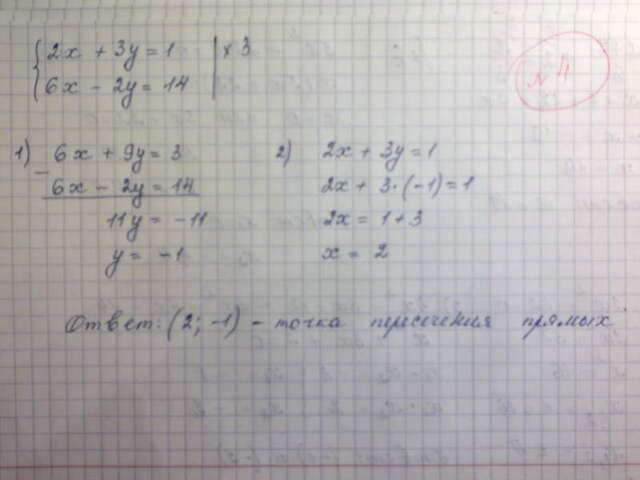 № 4
{2x + 3y = 1 | × 3
6x - 2y = 14
1) 6x + 9y = 3
- 6x - 2y = 14
11y = -11
y = -1
2) 2x + 3y = 1
2x + 3·(-1) = 1
2x = 1 + 3
x = 2
Ответ: (2; -1) - точка пересечения прямых